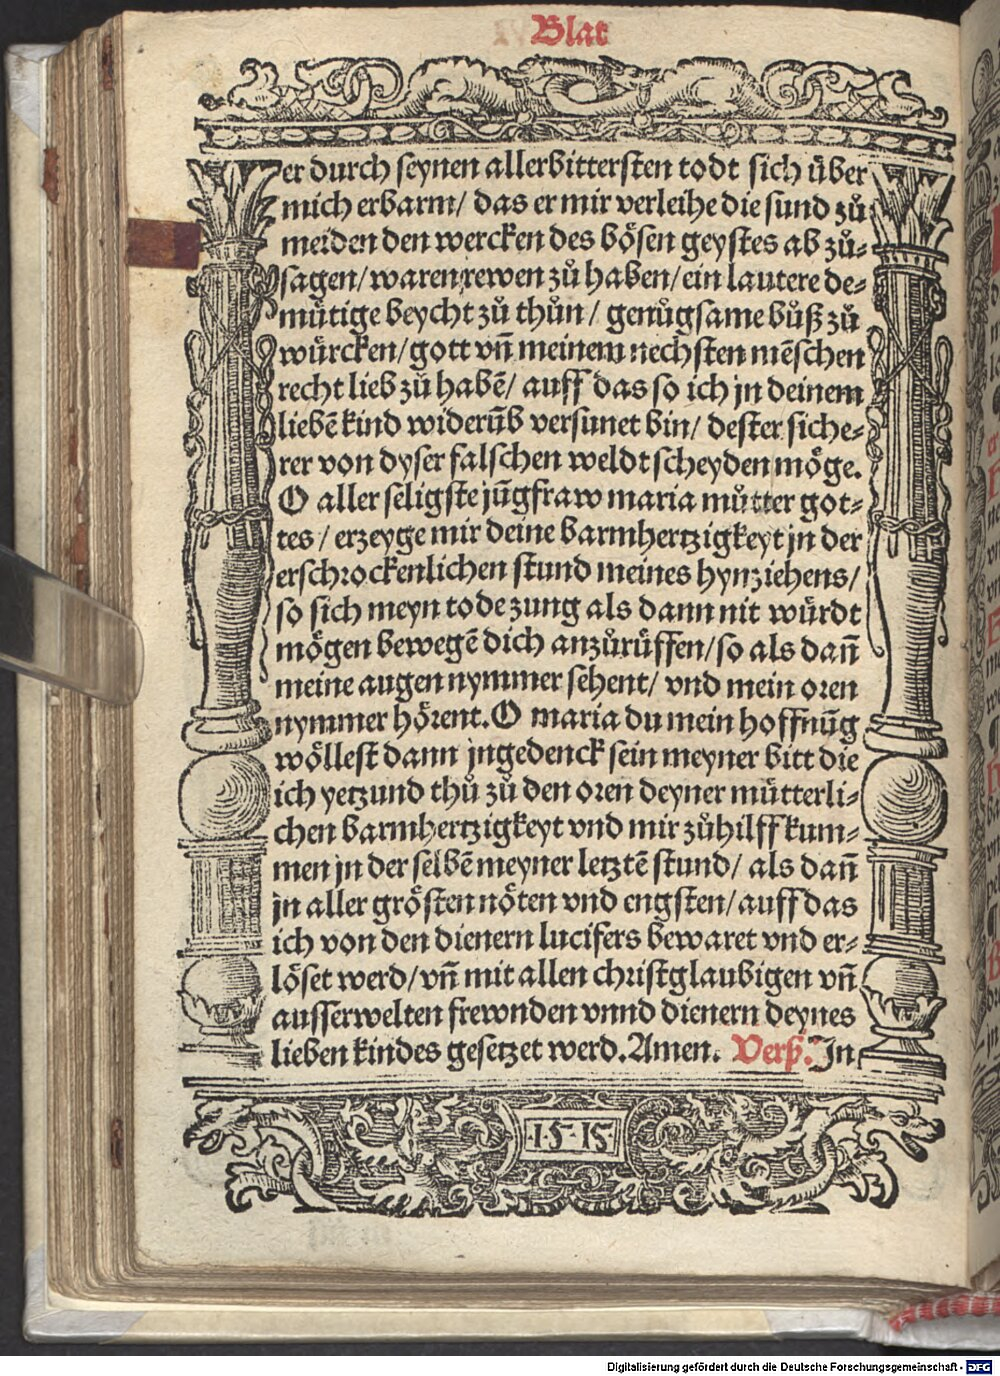 Blat
er durch seynen allerbittersten todt sich über
mich erbarm/ das er mir verleihe die sund zů
meiden den wercken des bösen geystes ab zů-
sagen/ waren rewen zů haben/ ein lautere de-
mütige beycht zů thůn/ genůgsame bůß zů
würcken/ gott vñ meinem nechsten mēschen
recht lieb zů habē/ auff das so ich jn deinem
liebē kind widerūb versunet bin/ dester siche-
rer von dyser falschen weldt scheyden möge.
O aller seligste jūgfraw maria můtter got-
tes/ erzeyge mir deine barmhertzigkeyt jn der
erschrockenlichen stund meines hynziehens/
so sich meyn tode zung als dann nit würdt
mögen bewegē dich anzůrüffen/ so als dañ
meine augen nymmer sehent/ vnd mein oren
nymmer hörent. O maria du mein hoffnūg
wöllest dann jngedenck sein meyner bitt die
ich yetzund thů zů den oren deyner můtterli-
chen barmhertzigkeyt vnd mir zůhilff kum-
men jn der selbē meyner letztē stund/ als dañ
jn aller grösten nöten vnd engsten/ auff das
ich von den dienern lucifers bewaret vnd er-
löset werd/ vñ mit allen christglaubigen vñ
ausserwelten frewnden vnnd dienern deynes
lieben kindes gesetzet werd. Amen. Verß. Jn
·15·15·
Digitalisierung gefördert durch die Deutsche Forschungsgemeinschaft - DFG